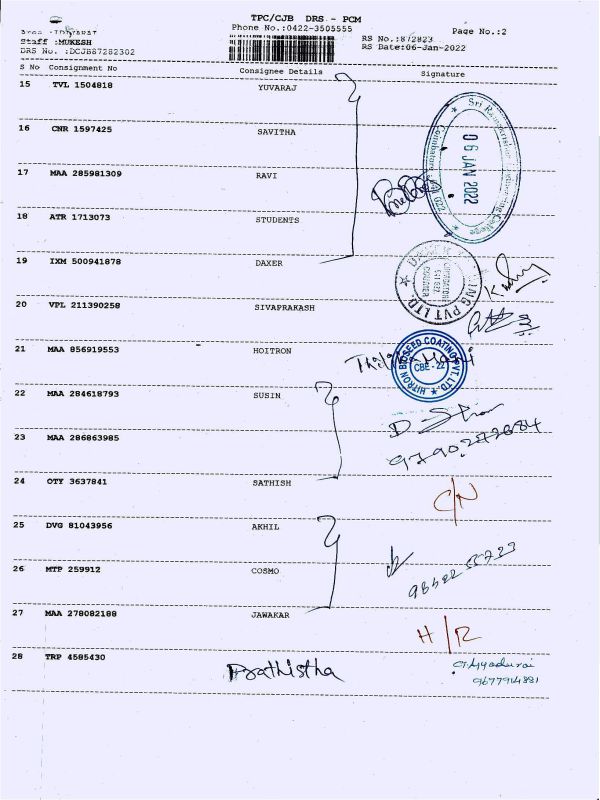 TPC/CJB DRS - PCM
Phone No.:0422-3505555
Page No.:2
Staff :MUKESH
DRS No. :DCJB87282302
RS No.:872823
RS Date:06-Jan-2022
S No Consignment No Consignee Details Signature
15 TVL 1504818 YUVARAJ
16 CNR 1597425 SAVITHA
06 JAN 2022
17 MAA 285981309 RAVI
18 ATR 1713073 STUDENTS
19 IXM 500941878 DAXER
20 VPL 211390258 SIVAPRAKASH
21 MAA 856919553 HOITRON
HITRON BIOSEED COATING PVT. LTD.
CBE - 22
22 MAA 284618793 SUSIN
23 MAA 286863985
24 OTY 3637841 SATHISH
C/N
25 DVG 81043956 AKHIL
26 MTP 259912 COSMO
27 MAA 278082188 JAWAKAR
H/R
28 TRP 4585430
Prathistha
9677914881